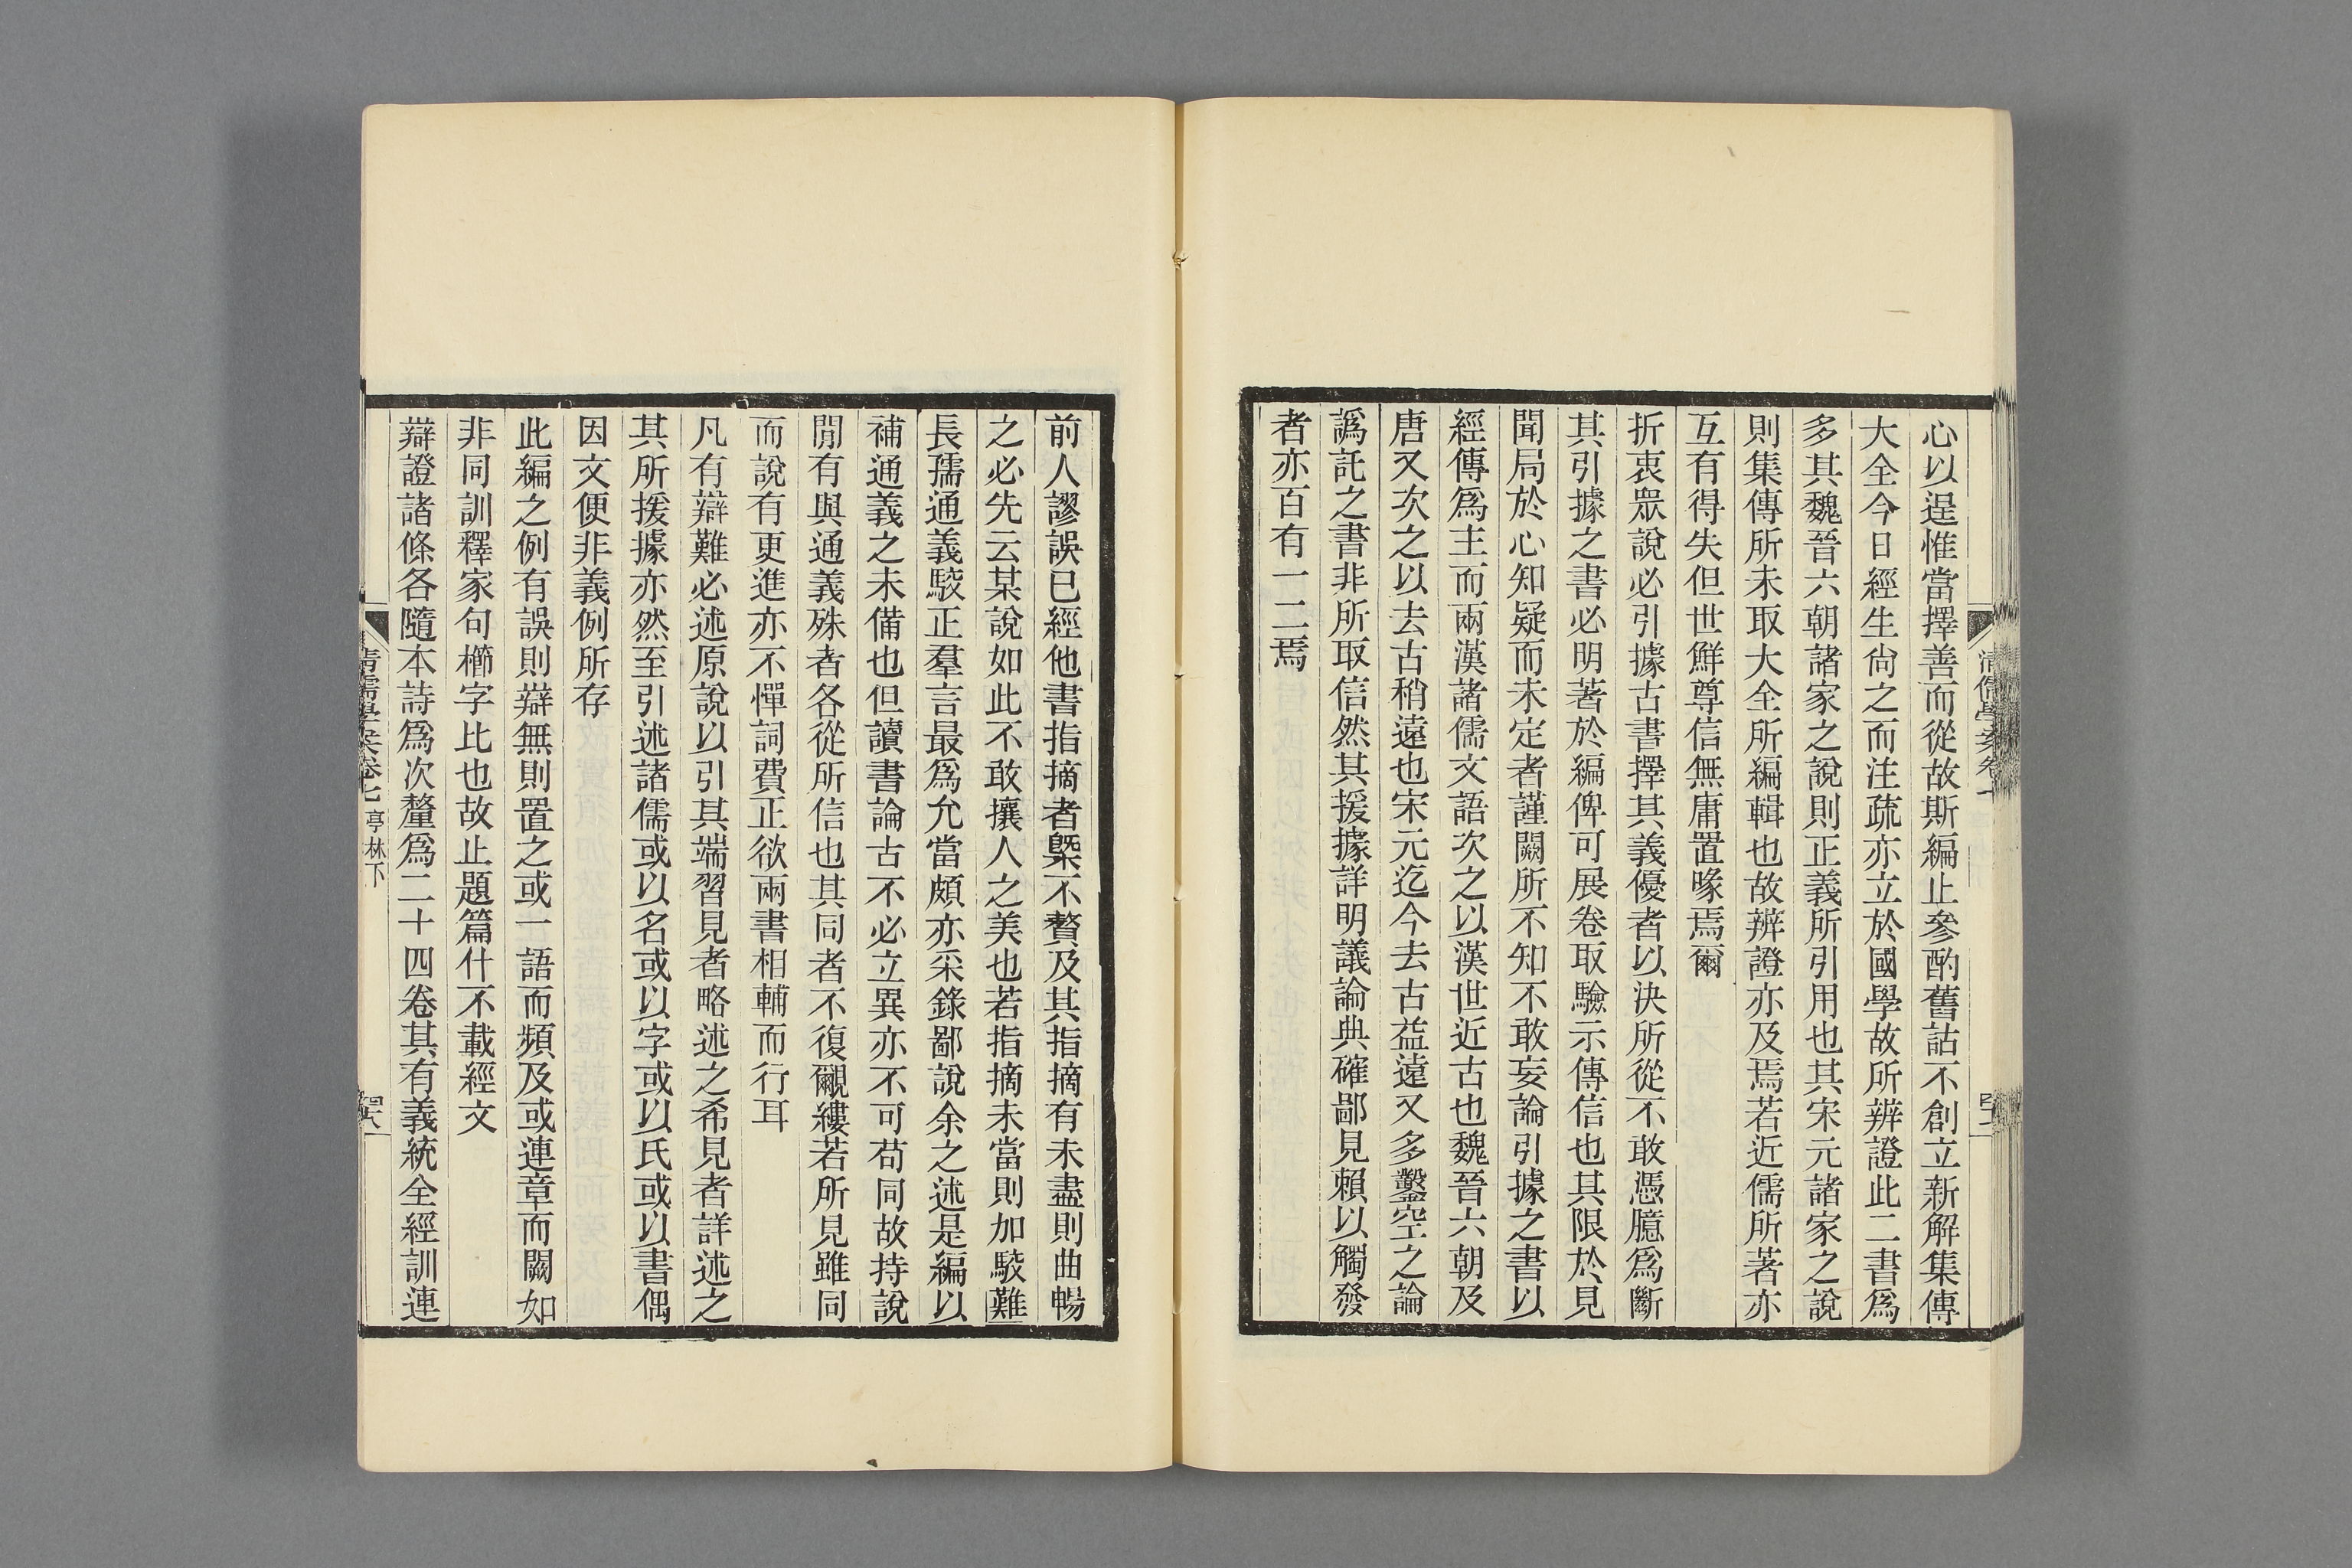 心以逞惟當擇善而從故斯編止參酌舊詁不創立新解集傳
大全今日經生尙之而注疏亦立於國學故所辨證此二書爲
多其魏晉六朝諸家之說則正義所引用也其宋元諸家之說
則集傳所未取大全所編輯也故辨證亦及焉若近儒所著亦
互有得失但世鮮尊信無庸置喙焉爾
折衷眾說必引據古書擇其義優者以決所從不敢憑臆爲斷
其引據之書必明著於編俾可展卷取驗示傳信也其限於見
聞局於心知疑而未定者謹闕所不知不敢妄論引據之書以
經傳爲主而兩漢諸儒文語次之以漢世近古也魏晉六朝及
唐又次之以去古稍遠也宋元迄今去古益遠又多鑿空之論
譌託之書非所取信然其援據詳明議論典確鄙見賴以觸發
者亦百有一二焉
前人謬誤已經他書指摘者槩不贅及其指摘有未盡則曲暢
之必先云某說如此不敢攘人之美也若指摘未當則加駮難
長孺通義駮正羣言最爲允當頗亦采錄鄙說余之述是編以
補通義之未備也但讀書論古不必立異亦不可苟同故持說
閒有與通義殊者各從所信也其同者不復覼縷若所見雖同
而說有更進亦不憚詞費正欲兩書相輔而行耳
凡有辯難必述原說以引其端習見者略述之希見者詳述之
其所援據亦然至引述諸儒或以名或以字或以氏或以書偶
因文便非義例所存
此編之例有誤則辯無則置之或一語而頻及或連章而闕如
非同訓釋家句櫛字比也故止題篇什不載經文
辯證諸條各隨本詩爲次釐爲二十四卷其有義統全經訓連
清儒學案卷七 亭林下